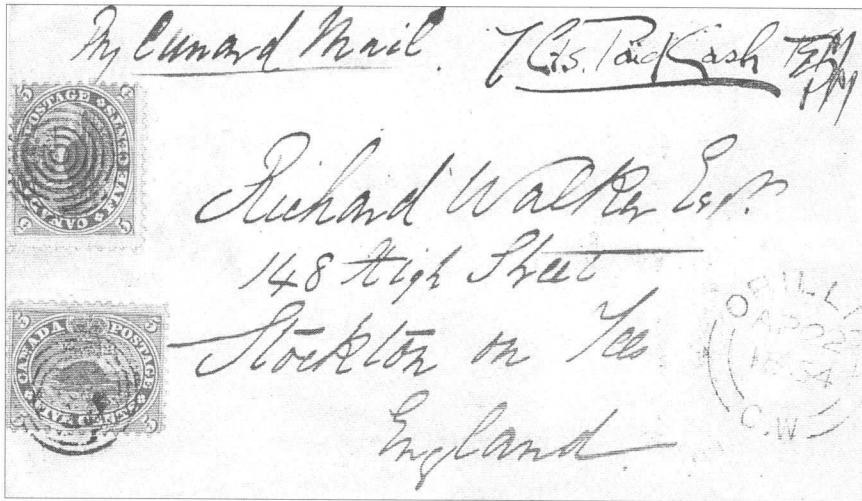 By Cunard Mail. 7 Cts. Paid Cash
CANADA POSTAGE
FIVE CENTS
5 5 5 5
Richard Walker Esqr.
148 High Street
Stockton on Tees
England.
CANADA POSTAGE
FIVE CENTS
5 5 5 5
ORILLIA
AP 02
1864
C.W